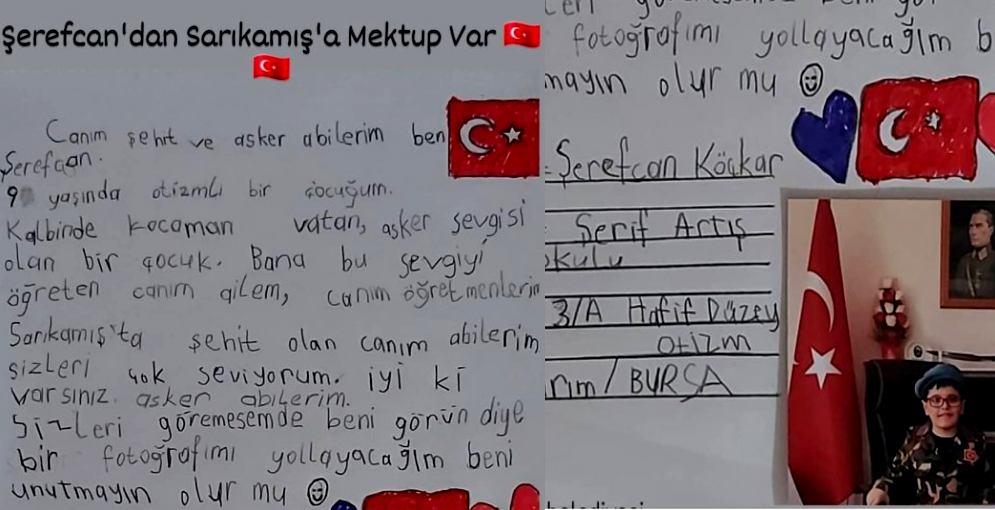 Şerefcan'dan Sarıkamış'a Mektup Var
Canım şehit ve asker abilerim ben
Şerefcan.
9 yaşında otizmli bir çocuğum.
Kalbinde kocaman vatan, asker sevgisi
olan bir çocuk. Bana bu sevgiyi
öğreten canım ailem, canım öğretmenlerim
Sarıkamış'ta şehit olan canım abilerim
sizleri çok seviyorum. iyi ki
varsınız. asker abilerim.
Sizleri göremesemde beni görün diye
bir fotoğrafımı yollayacağım beni
unutmayın olur mu
fotoğrafımı yollayacağım b
mayın olur mu
Şerefcan Köçkar
Şerif Artış
okulu
3/A Hafif Düzey
otizm
rım / BURSA